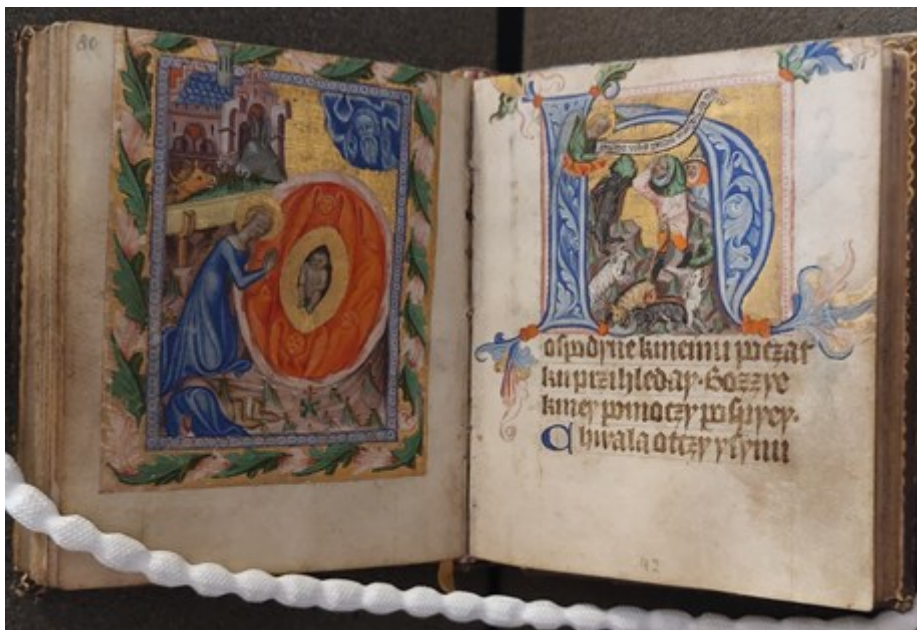 Hospodyne kmemu poczat
ku przihleday·Bozzye
kmey pomoczy pospyey·
Chwala otczy y synu
42